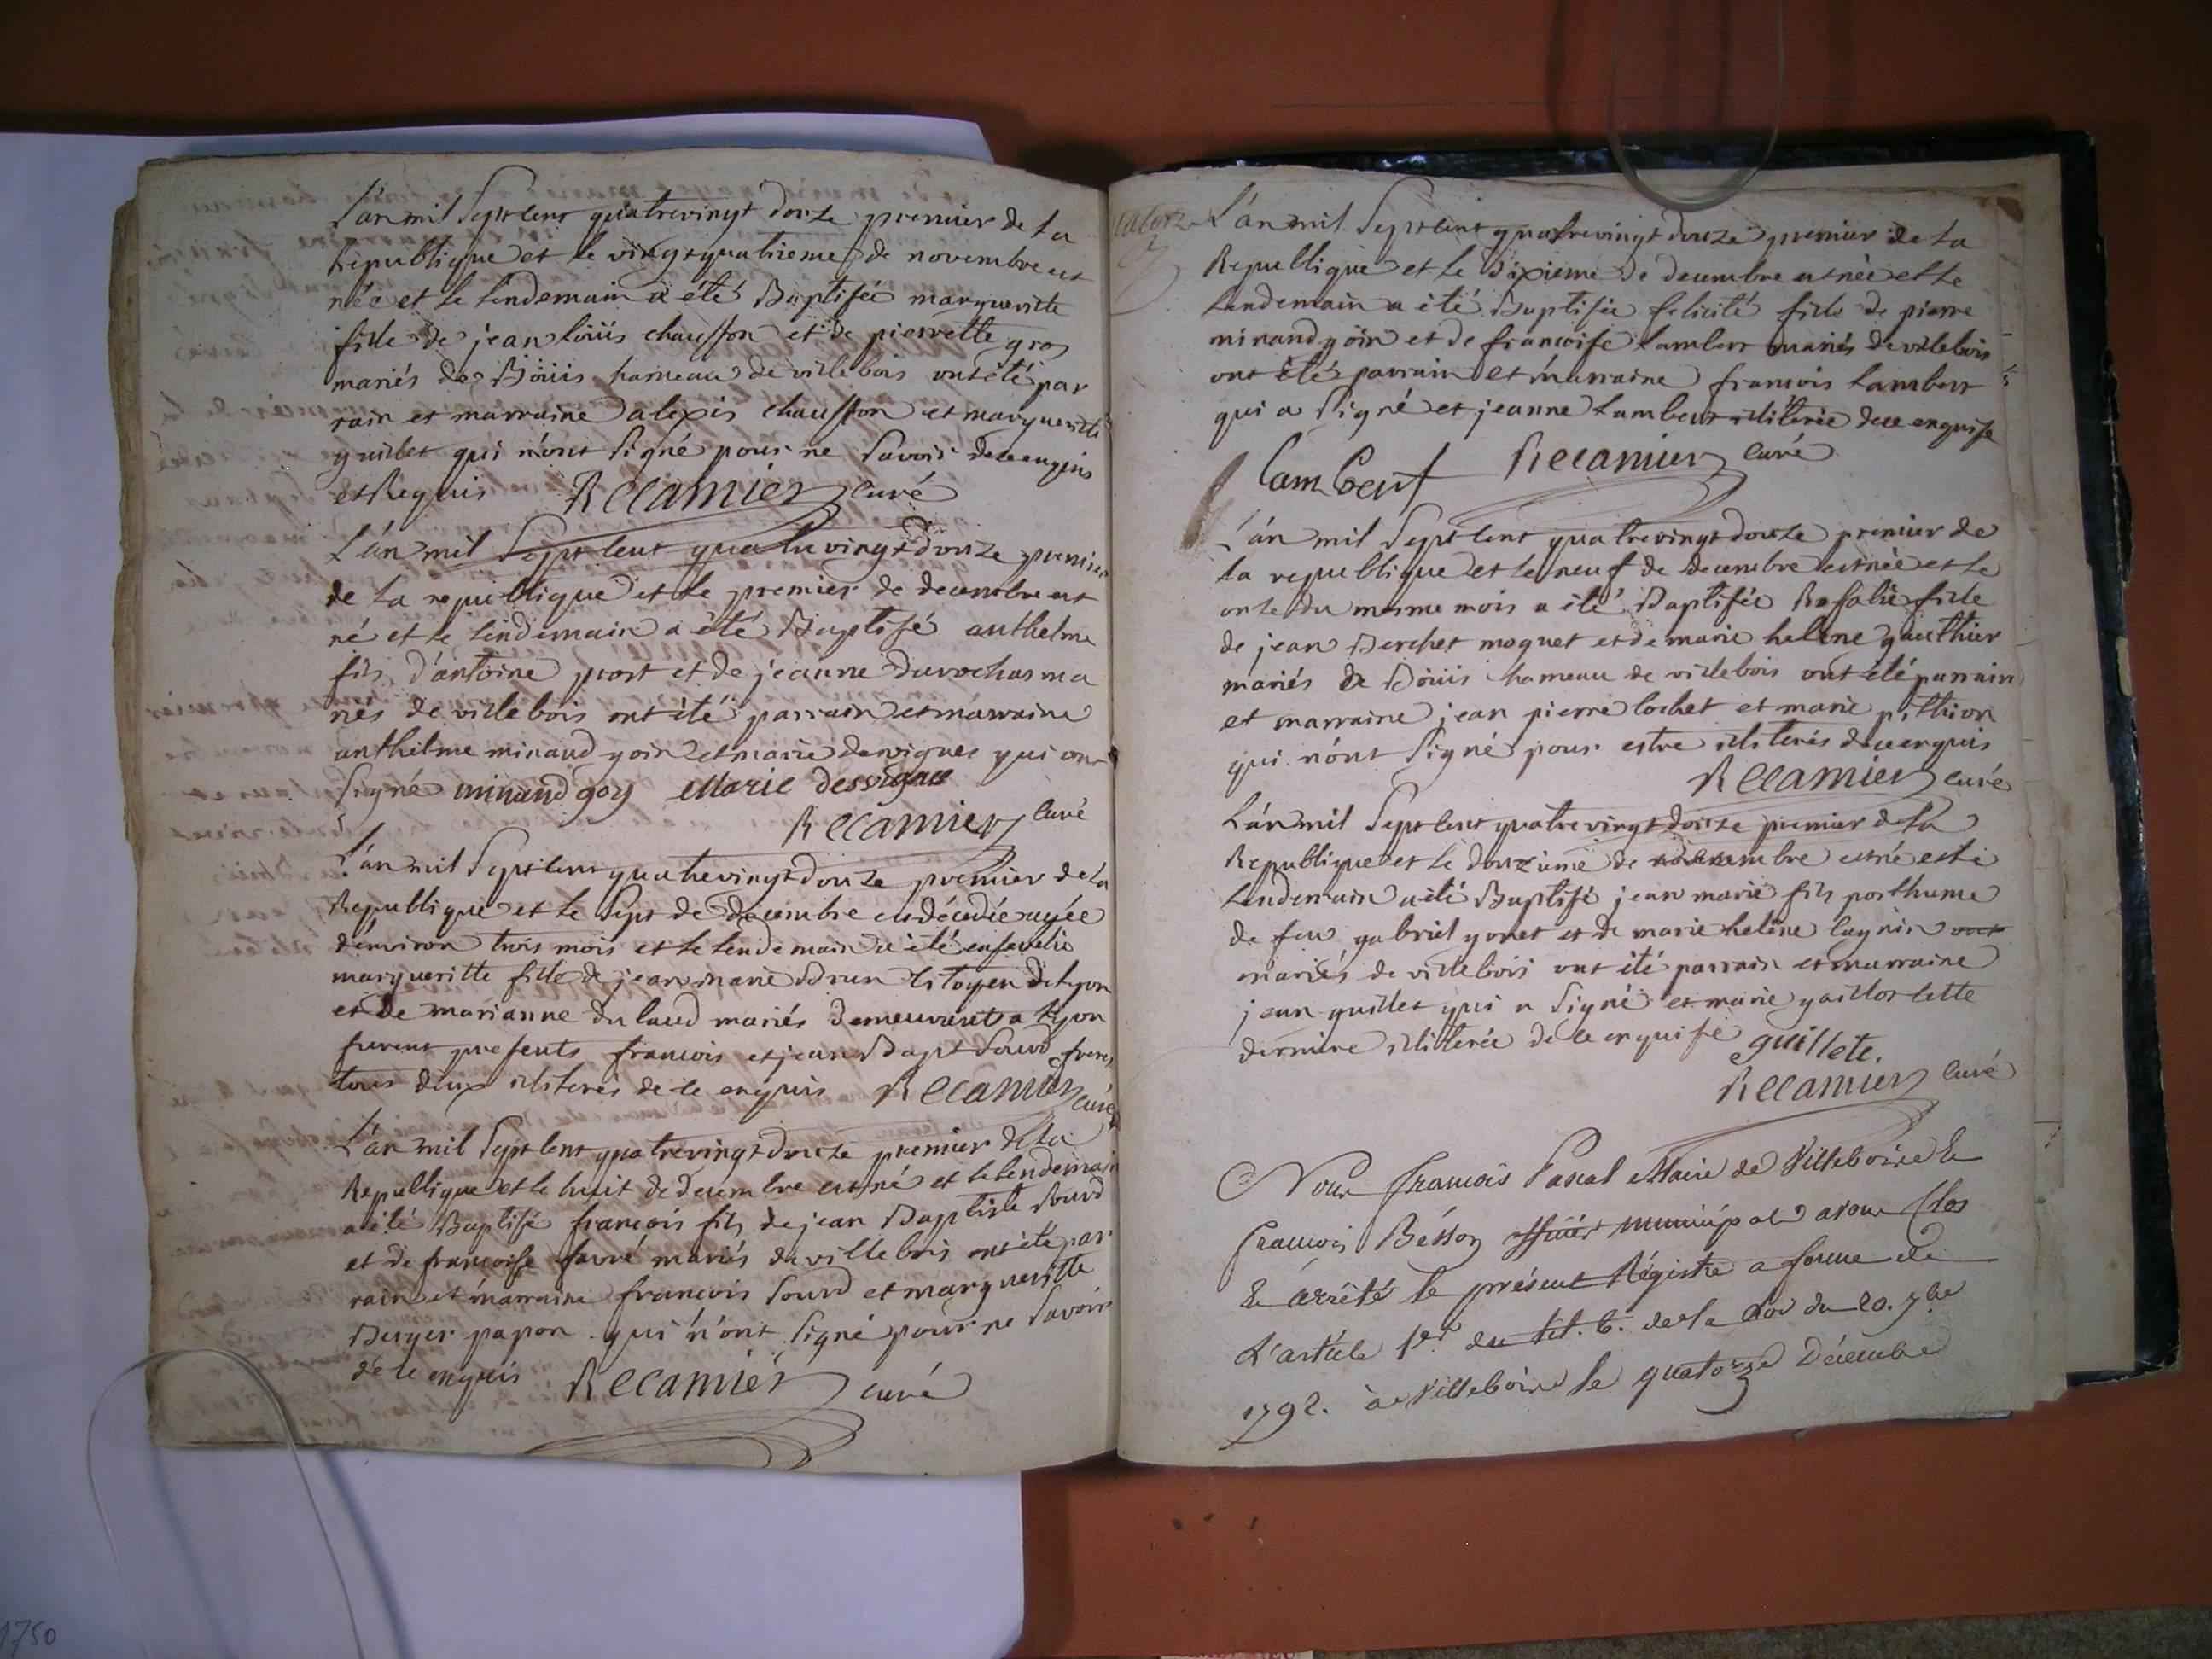 L'an mil Sept cent quatrevingt douze premier de la
République et le vingt quatrieme de novembre est
née et le lendemain a été Baptisée margueritte
fille de jean loüis chausson et de pierrette gros
mariés de Boüis hameau de villebois ont été par
rain et marraine alexis chausson et margueritte
guillet qui n'ont signé pour ne savoir de ce enquis
et Requis Récamier curé
L'an mil Sept cent quatrevingt douze premier
de la republique et le premier de decembre est
né et le lendemain a été Baptisé anthelme
fils d'antoine prost et de jeanne durochas ma
riés de villebois ont été parrain et marraine
anthelme minand goin et marie devignes qui ont
signé minand goy Marie desvigne
Récamier curé
L'an mil Sept cent quatrevingt douze premier de la
Republique et le Sept de decembre est décédée agée
d'environ trois mois et le lendemain a été ensevelie
margueritte fille de jean marie Brun citoyen de lyon
et de marianne du laud mariés demeurant a lyon
furent presents francois et jean Bapt Sourd freres
tous deux illiterés de ce enquis Récamier curé
L'an mil Sept cent quatrevingt douze premier de la
Republique et le huit de decembre est né et le lendemain
a été Baptisé françois fils de jean Baptiste Sourd
et de francoise favre mariés de villebois ont été par
rain et marraine francois Sourd et margueritte
Berger papon qui n'ont signé pour ne savoir
de ce enquis Récamier curé
L'an mil Sept cent quatrevingt douze premier de la
Republique et le dixieme de decembre est née et le
lendemain a été Baptisée felicité fille de pierre
minand goin et de francoise lambert mariés de villebois
ont été parrain et marraine francois lambert
qui a signé et jeanne lambert illiterée de ce enquise
Lambert Récamier curé
L'an mil Sept cent quatrevingt douze premier de
la republique et le neuf de decembre est née et le
onze du mesme mois a été Baptisée Rosalie fille
de jean Berchet moguet et de marie helene gauthier
mariés de Boüis hameau de villebois ont été parrain
et marraine jean pierre lochet et marie pithion
qui n'ont signé pour estre illiterés de ce enquis
Récamier curé
L'an mil Sept cent quatrevingt douze premier de la
Republique et le douzieme de decembre est né et le
lendemain a été Baptisé jean marie fils posthume
de feu gabriel gonet et de marie helene lagnin
mariés de villebois ont été parrain et marraine
jean guillet qui a signé et marie gaillot cette
derniere illiterée de ce enquise guillete.
Récamier curé
Nous francois Pascal Maire de Villebois &
francois Besson officier municipal avons clos
& arrêté le présent Régistre a forme de
L'article 1er. du tit. 6. de la Loi du 20. 7bre
1792. à Villebois le quatorze Décembre